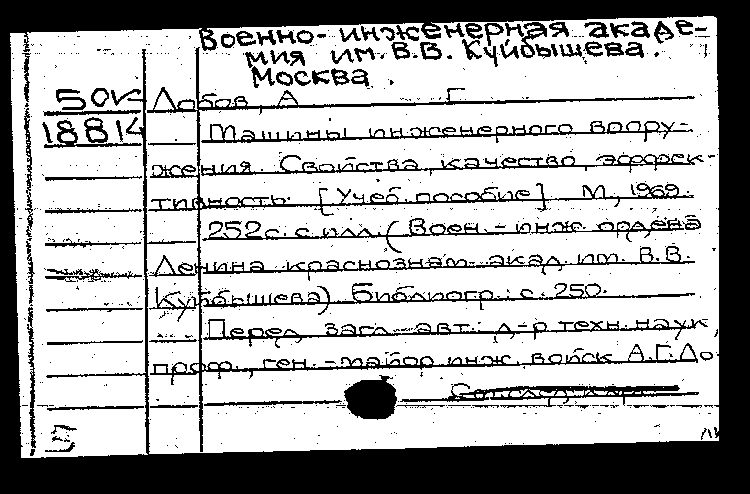 Военно-инженерная акаде-
мия им. В.В. Куйбышева.
Москва.
50к Лобов, А Г
18814 Машины инженерного воору-
жения. Свойства, качество, эффек-
тивность. [Учеб. пособие] М, 1969.
252с. с илл. (Воен.-инж. ордена
Ленина краснознам. акад. им. В.В.
Куйбышева) Библиогр.: с. 250.
Перед загл. авт.: д-р техн. наук,
проф., ген.-майор инж. войск А.Г. Ло-